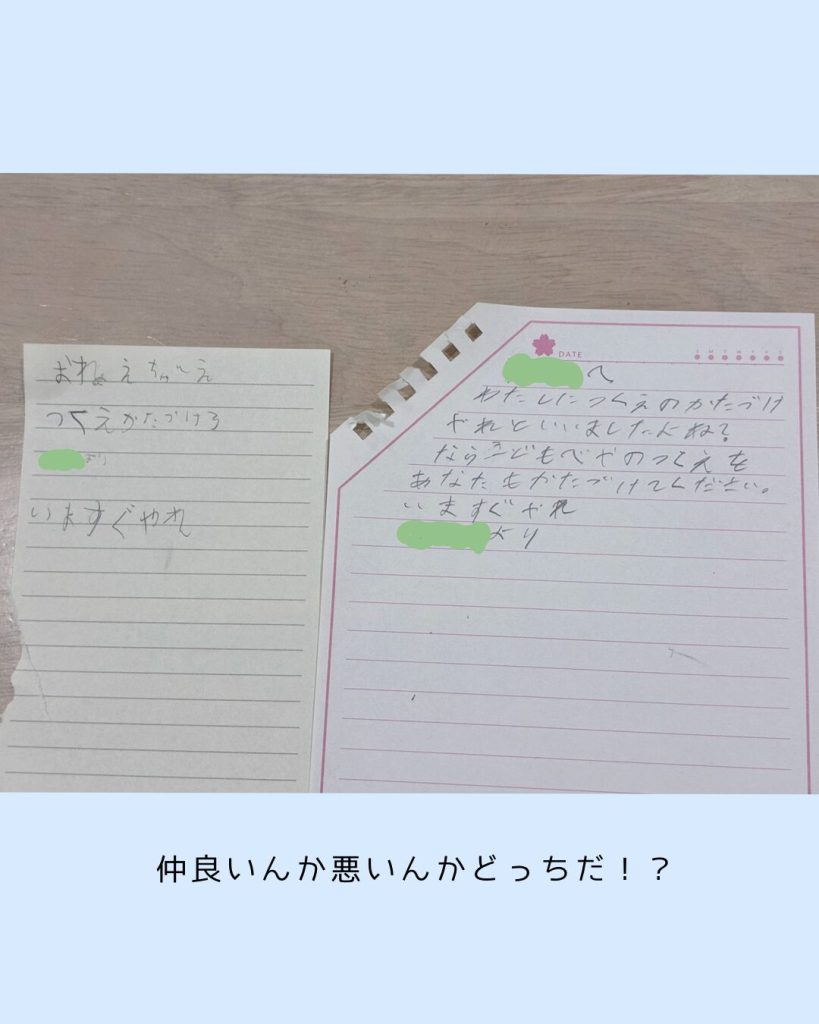 おねえちゃんえ
つくえかたづけろ
より
いますぐやれ
DATE
S M T W T F S
へ
わたしにつくえのかたづけ
やれといいましたよね?
ならこどもべやのつくえを
あなたもかたづけてください。
いますぐやれ
より
仲良いんか悪いんかどっちだ!?